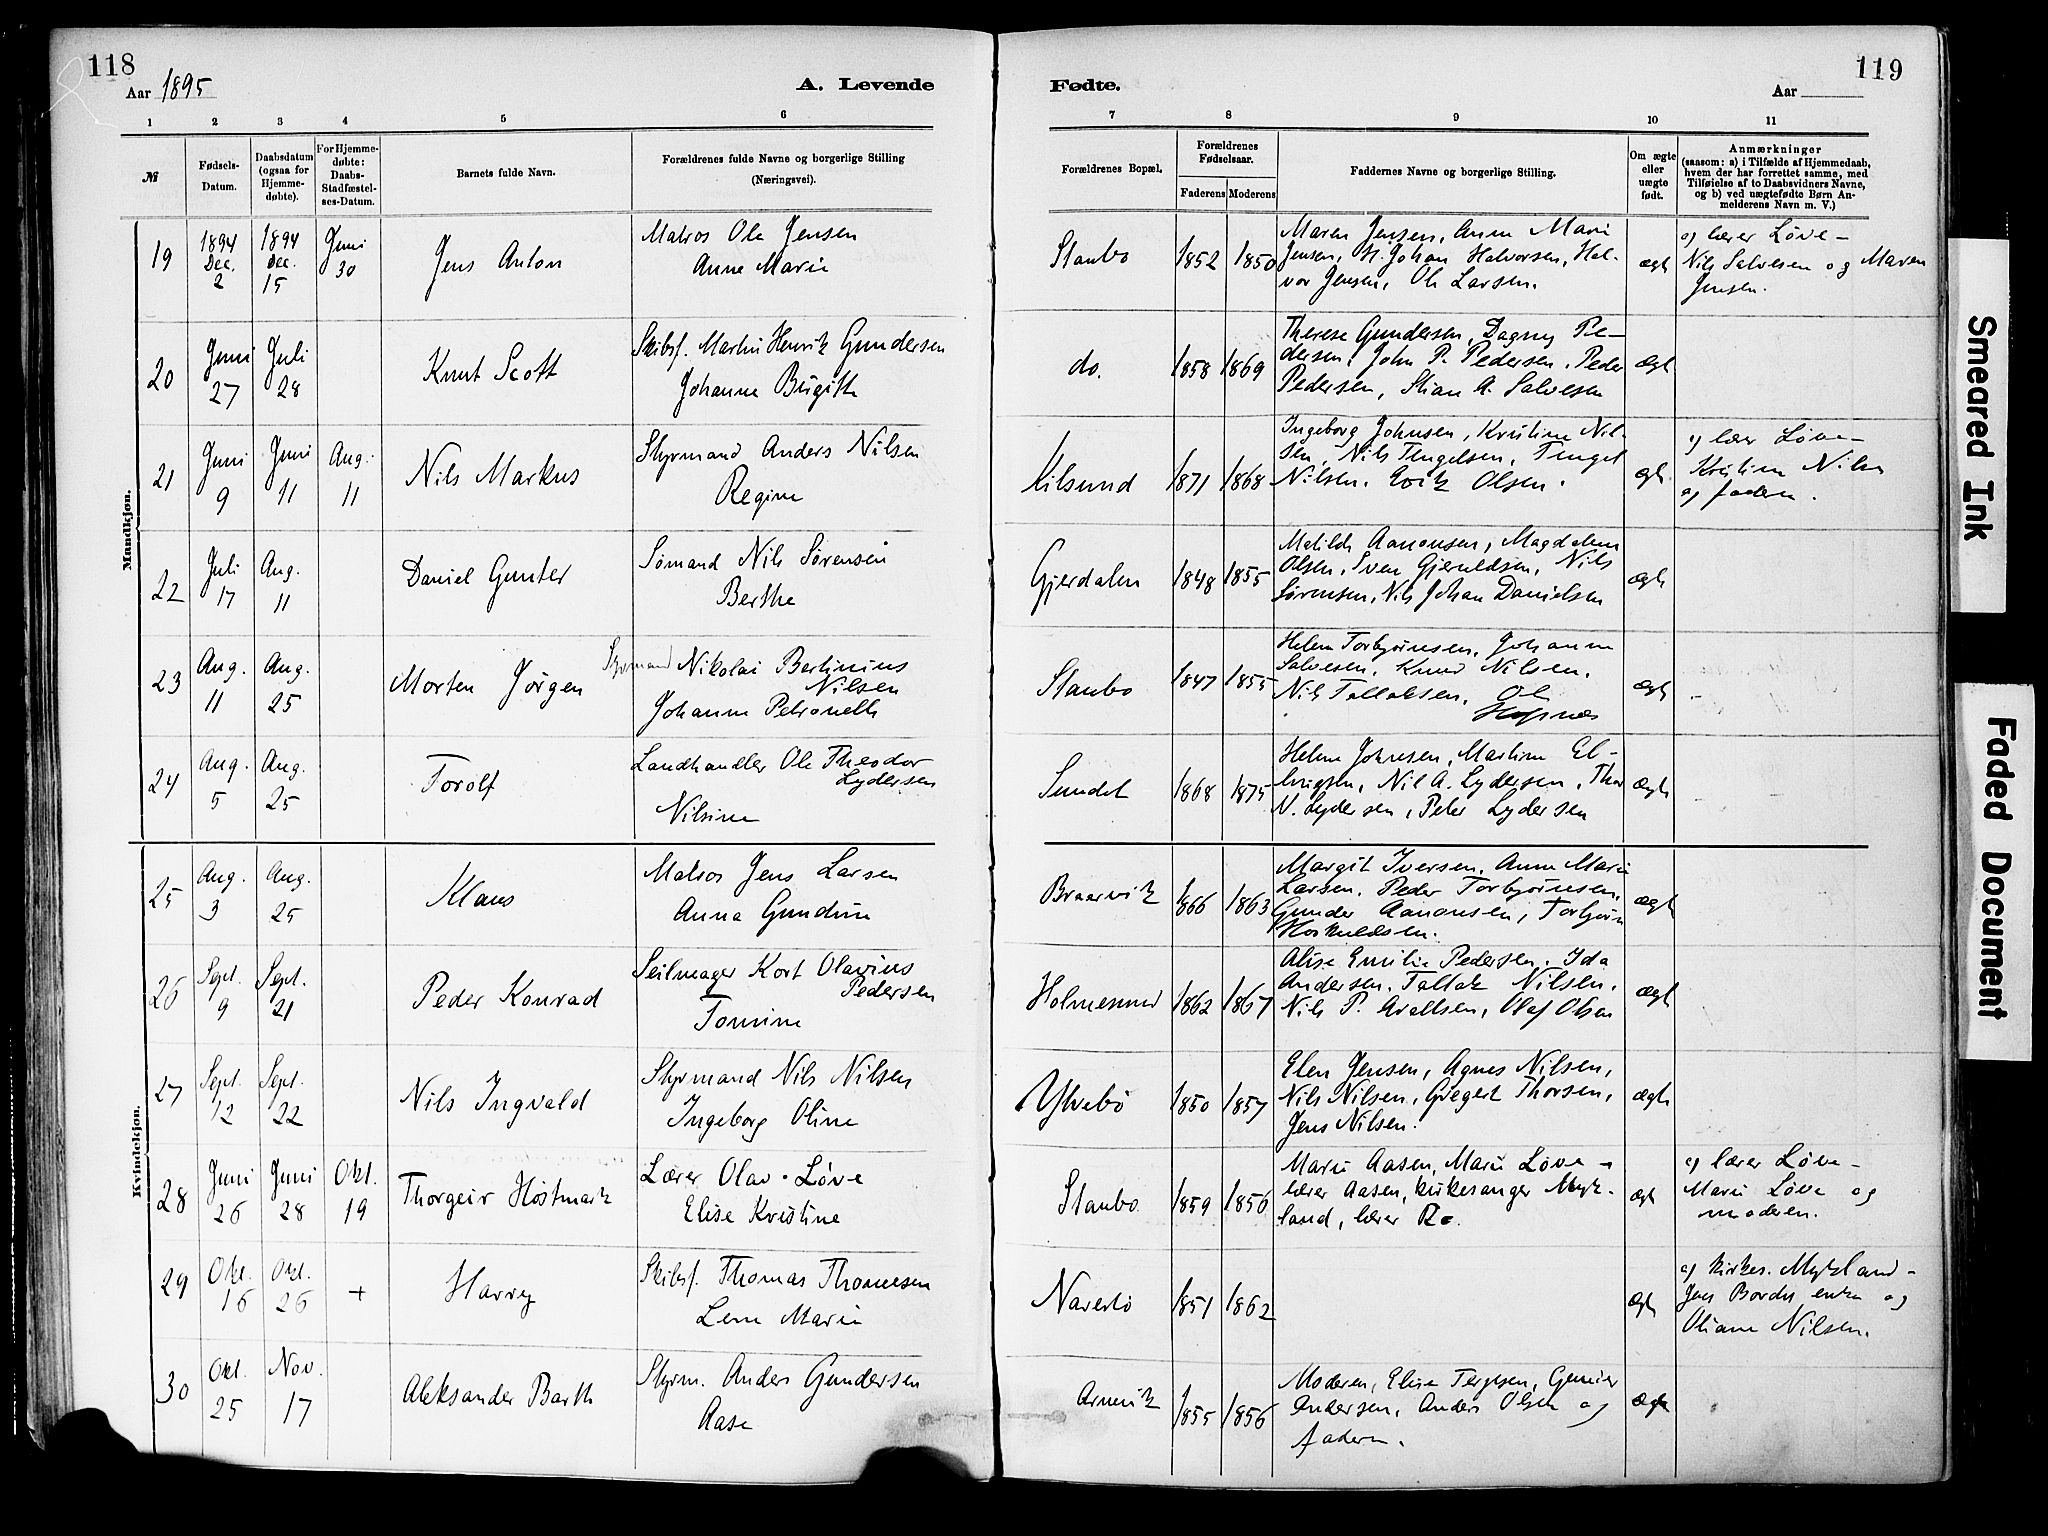 118
Aar 1895
A. Levende
Fødte.
119
Aar
1 2 3 4 5 6 7 8 9 10 11
№
Fødsels-
Datum.
Daabsdatum
(ogsaa for
Hjemme-
døbte).
For Hjemme-
døbte:
Daabs-
Stadfæstel-
ses-Datum.
Barnets fulde Navn.
Forældrenes fulde Navne og borgerlige Stilling
(Næringsvei).
Forældrenes Bopæl.
Forældrenes
Fødselsaar.
Faderens Moderens
Faddernes Navne og borgerlige Stilling.
Om ægte
eller
uægte
født.
Anmærkninger
(saasom: a) i Tilfælde af Hjemmedaab,
hvem der har forrettet samme, med
Tilføielse af to Daabsvidners Navne,
og b) ved uægtefødte Børn An-
melderens Navn m. V.)
Mandkjøn.
19
1894
Dec.
2
1894
Dec.
15
Juni
30
Jens Anton
Matros Ole Jensen
Anne Marie
Staubo
1852 1850
Maren Jensen, Anne Marie
Jensen, H. Johan Halvorsen, Hal-
vor Jensen, Ole Larsen.
ægte
af lærer Løve -
Nils Salvesen og Maren
Jensen.
20
Juni
27
Juli
28
Knut Scott
Skibsf. Martin Henrik Gundersen
Johanne Birgitte
do.
1858 1869
Therese Gundersen, Dagny Pe-
dersen, John P. Pedersen, Peder
Pedersen, Stian A. Salvesen
ægte
21
Juni
9
Juni
11
Aug.
11
Nils Markus
Styrmand Anders Nilsen
Regine
Kilsund
1871 1868
Ingeborg Johnsen, Kristine Nil-
sen, Nils Tengelsen, Tengel
Nilsen, Erik Olsen.
ægte
af lærer Løve -
Kristine Nilsen
og faderen.
22
Juli
17
Aug.
11
Daniel Gunter
Sømand Nils Sørensen
Berthe
Gjerdalen
1848 1855
Matilde Aanonsen, Magdalene
Olsen, Sven Gjeruldsen, Nils
Sørensen, Nils Johan Danielsen
ægte
23
Aug.
11
Aug.
25
Morten Jørgen
Styrmand Nikolai Bertinius
Nilsen
Johanne Petronelle
Staubo
1847 1855
Helene Torbjørnsen, Johanne
Salvesen, Knud Nilsen,
Nils Tallaksen, Ole
Hopnæs
ægte
24
Aug.
5
Aug.
25
Torolf
Landhandler Ole Theodor
Lydersen
Nilsine
Sundet
1868 1875
Helene Johnsen, Martine El-
lingsen, Nils A. Lydersen, Thor
N. Lydersen, Peter Lydersen
ægte
Kvindekjøn.
25
Aug.
3
Aug.
25
Klaus
Matros Jens Larsen
Anna Gundine
Braarvik
1866 1863
Margit Iversen, Anne Marie
Larsen, Peder Torbjørnsen,
Gunder Aanonsen, Torbjørn
Horkuldsen.
ægte
26
Sept.
9
Sept.
21
Peder Konrad
Seilmager Kort Olavius
Pedersen
Tomine
Holmesund
1862 1867
Alise Emilie Pedersen, Ida
Andersen, Tallak Nilsen,
Nils P. Avaldsen, Olaf Olsen
ægte
27
Sept.
12
Sept.
22
Nils Ingvald
Styrmand Nils Nilsen
Ingeborg Oline
Ylvebo
1850 1857
Elen Jensen, Agnes Nilsen,
Nils Nilsen, Gregert Thorsen,
Jens Nilsen.
ægte
28
Juni
26
Juni
28
Okt.
19
Thorgeir Høstmark
Lærer Olav Løve
Elise Kristine
Staubo
1859 1856
Marie Aasen, Marie Løve -
lærer Aasen, kirkesanger Myk-
land, lærer Ro.
ægte
af lærer Løve -
Marie Løve og
moderen.
29
Okt.
16
Okt.
26
+
Harry
Skibsf. Thomas Thomesen
Lene Marie
Narestø
1851 1862
ægte
af kirkes. Mykland -
Jens Bordes enke og
Oliane Nilsen.
30
Okt.
25
Nov.
17
Aleksander Barth
Styrm. Anders Gundersen
Aase
Arnevik
1855 1856
Moderen, Elise Terjesen, Gunder
Andersen, Anders Olsen og
faderen.
ægte
Smeared Ink
Faded Document